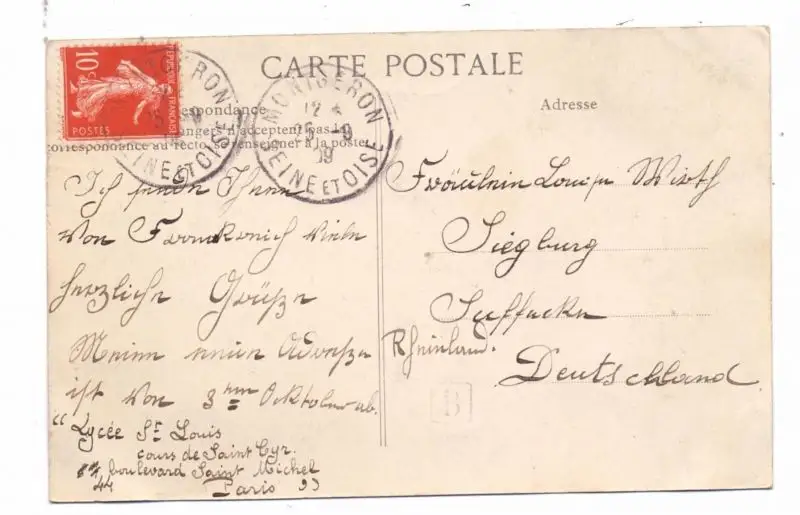 CARTE POSTALE
10c
REPUBLIQUE FRANÇAISE
POSTES
MONTGERON
12
25 -9
09
SEINE ET OISE
RON
OISE
SEINE ET
respondance
angers n'acceptent pas la
correspondance au recto, se renseigner à la poste
Adresse
Ich sende Ihnen
von Frankreich viele
herzliche Grüße
Meine neue Adresse
ist von 3ten Oktober ab.
"Lycée St Louis
cours de Saint Cyr.
44 boulevard Saint Michel
Paris "
Fräulein Louise Wirth
Siegburg
Rheinland.
Deutschland
B